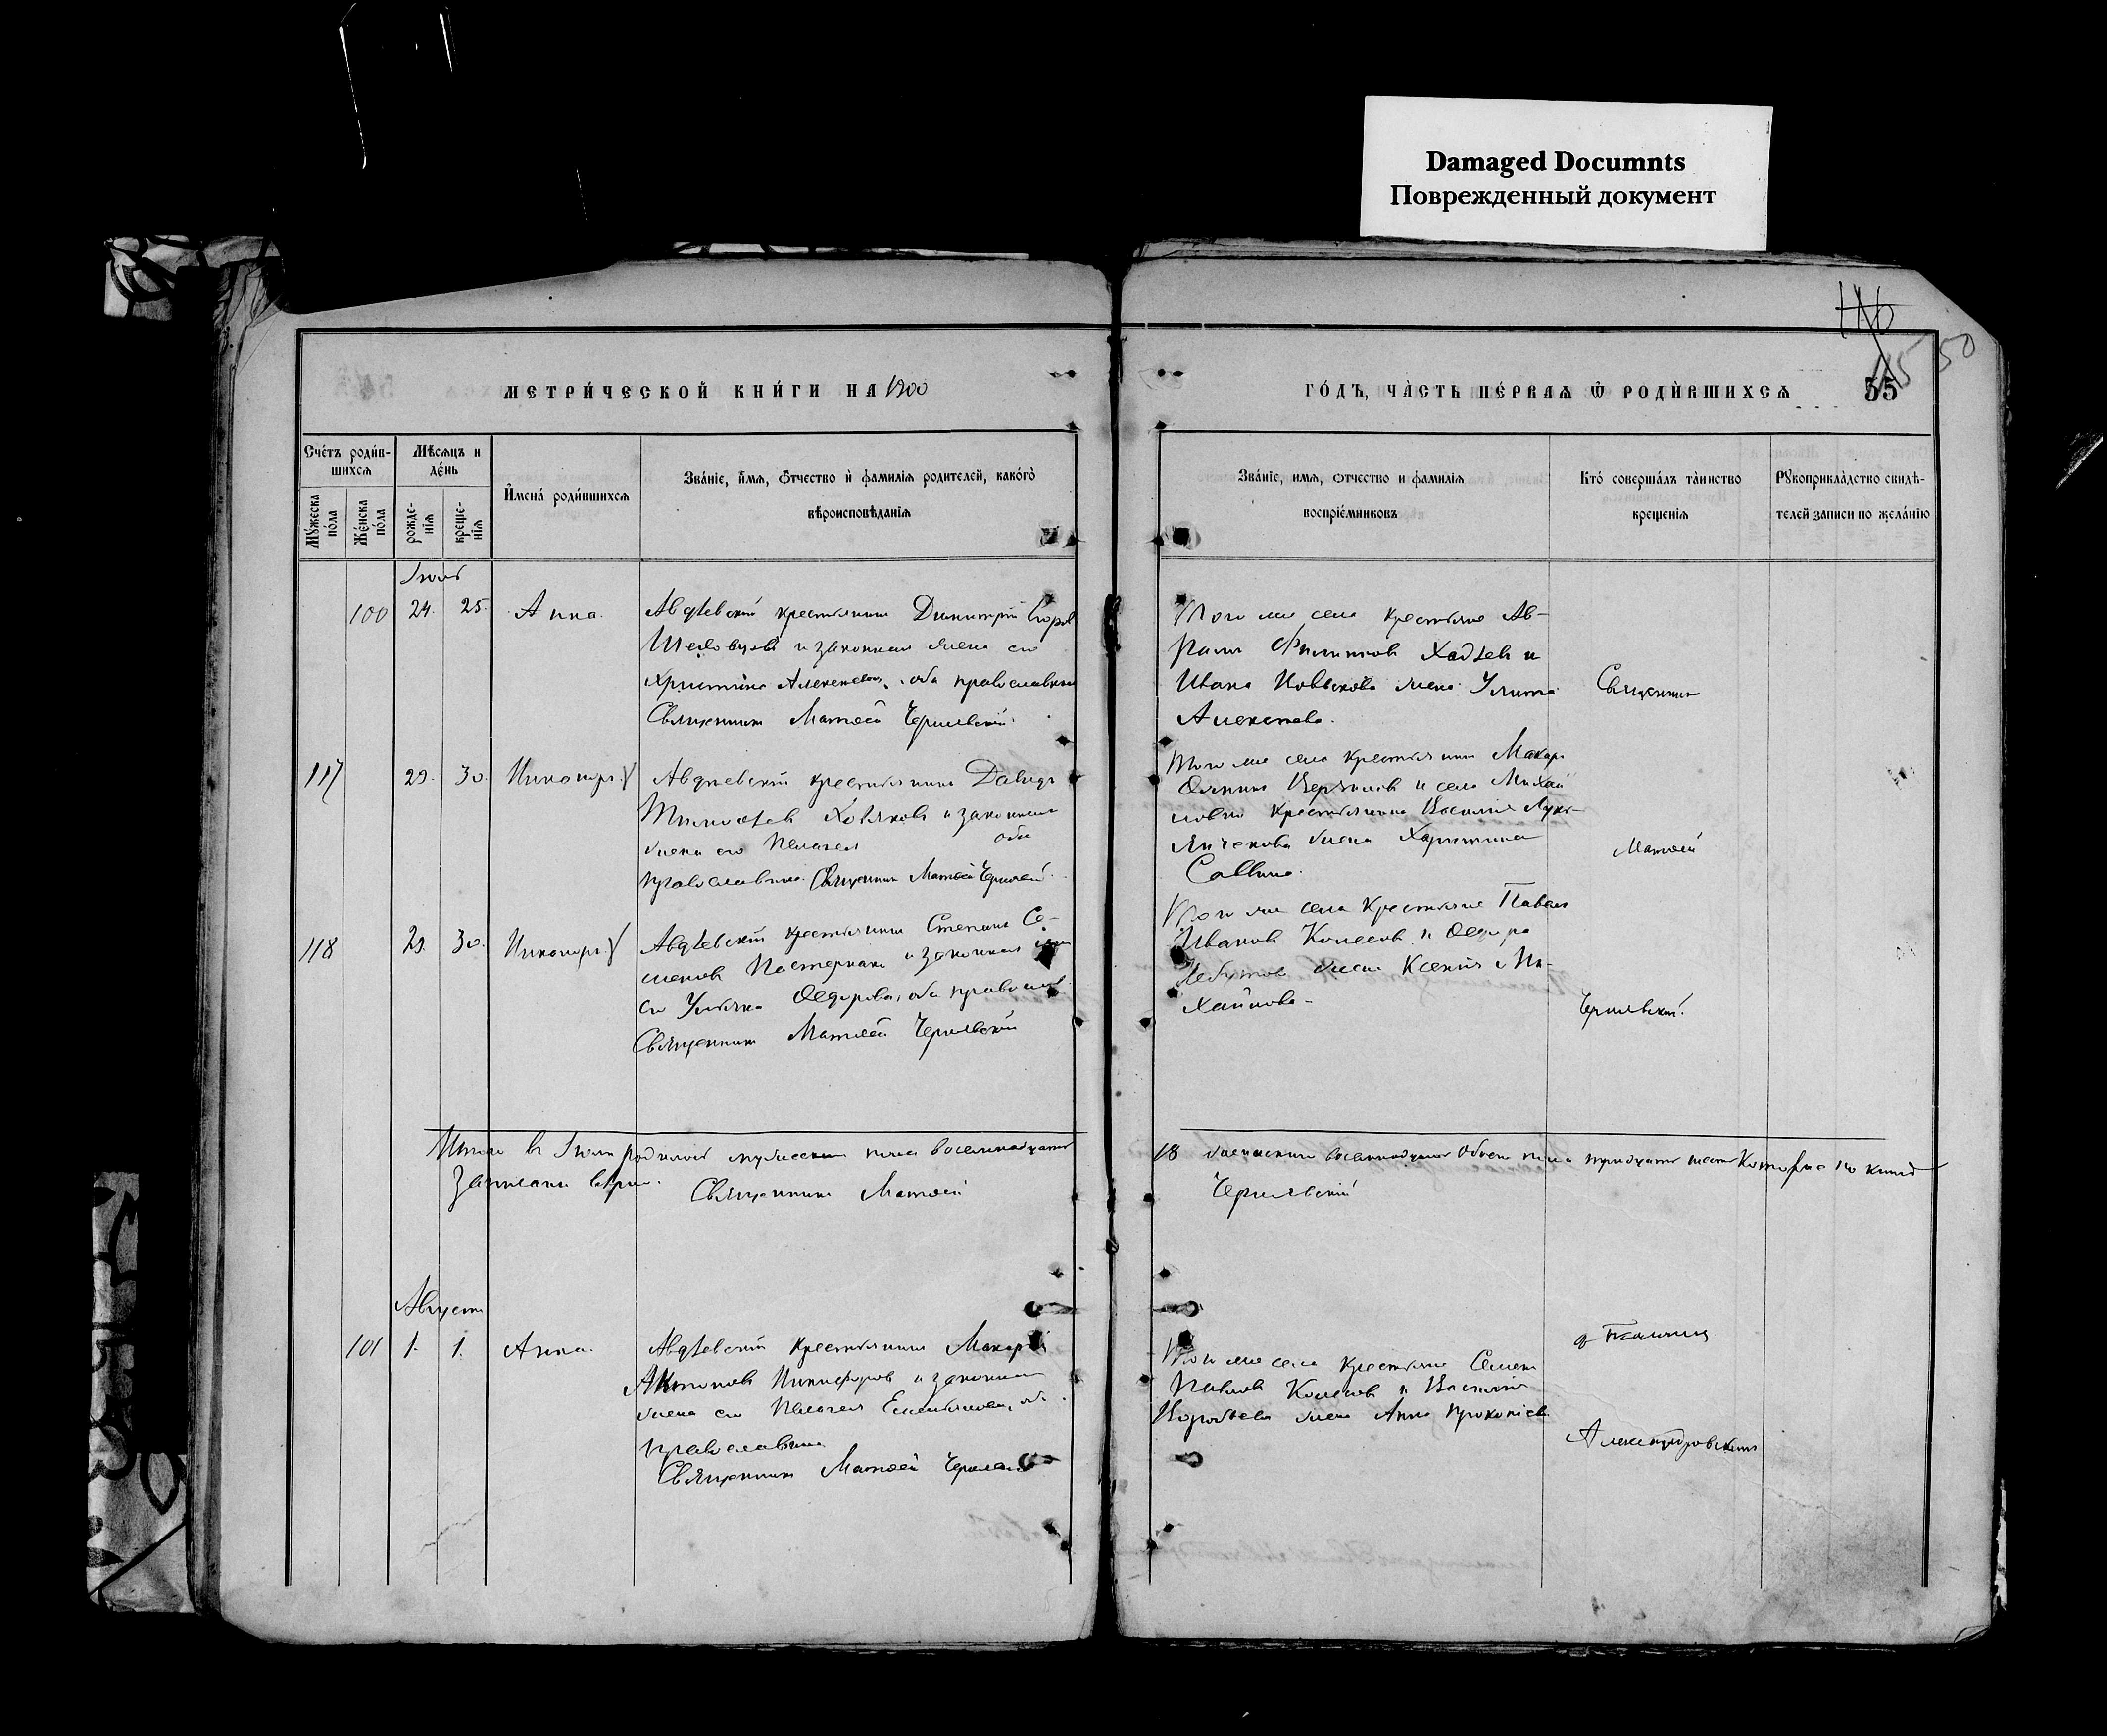 Damaged Documnts
Поврежденный документ
116
55 50
МЕТРИ́ЧЕСКОЙ КНИ́ГИ НА 1900
ГО́ДЪ, ЧА̀СТЬ ПЕ́РВАѦ Ѡ҆ РОДИ́ВШИХСѦ
Сче́тъ роди́в-
шихсѧ
Мѣсѧцъ и
де́нь
Му́жеска
по́ла
Же́нска
по́ла
рожде-
нїѧ
креще-
нїѧ
И҆мена̀ роди́вшихсѧ
Зва́нїе, и҆́мѧ, ѻ҆́тчество и҆ фамилїѧ родителей, како́гѡ
вѣроисповѣ́данїѧ
Зва́нїе, имѧ, ѻтчество и фамилїѧ
воспрїе́мниковъ
Кто̀ соверша́лъ та̀инство
крещенїѧ
Рꙋкоприкла̀дство свидѣ-
телей записи по жела́нїю
Іюль
100 24. 25. Анна.
Авдѣевскій крестьянинъ Димитрій Егоров
и законная жена его
Христина Алексеева, оба православные
Священникъ Матѳей Чернявскій.
Того же села крестьяне Ав-
рамъ Филиппов Хадѣев и
Ивана Новикова жена Улита
Алексѣева.
Священникъ
117 29. 30. Никаноръ.
Авдѣевскій крестьянинъ Давидъ
Тимоѳѣев и законная
жена его Пелагея оба
православные. Священникъ Матѳей Чернявскій.
Того же села крестьянинъ Макаръ
и села Михай
ловки крестьянина Василія Лукь-
янченкова жена Харитина
Саввина.
Матѳей
118 29. 30. Никаноръ.
Авдѣевскій крестьянинъ Степанъ Се-
меновъ Пастернакъ и законная жена
его Ульяна Ѳедорова, оба православ.
Священникъ Матѳей Чернявскій
Того же села крестьяне Павелъ
Иванов Колесов и Ѳедора
жена Ксенія Ми-
хайлова.
Чернявскій.
Итого въ Іюлѣ родилось мужеска пола восемнадцать
18 женскаго восемнадцать обоего пола тридцать шесть которые по книгѣ
записаны вѣрно.
Священникъ Матѳей
Чернявскій
Августъ
101 1. 1. Анна.
Авдѣевскій крестьянинъ Макарій
Антонов Никифоров и законная
жена его Пелагея Емельянова, оба
православные
Священникъ Матѳей Чернявскій
Того же села крестьяне Семенъ
Павлов Колесов и Василія
Воробьева жена Анна Прокопіева
Псаломщ.
Александровскій